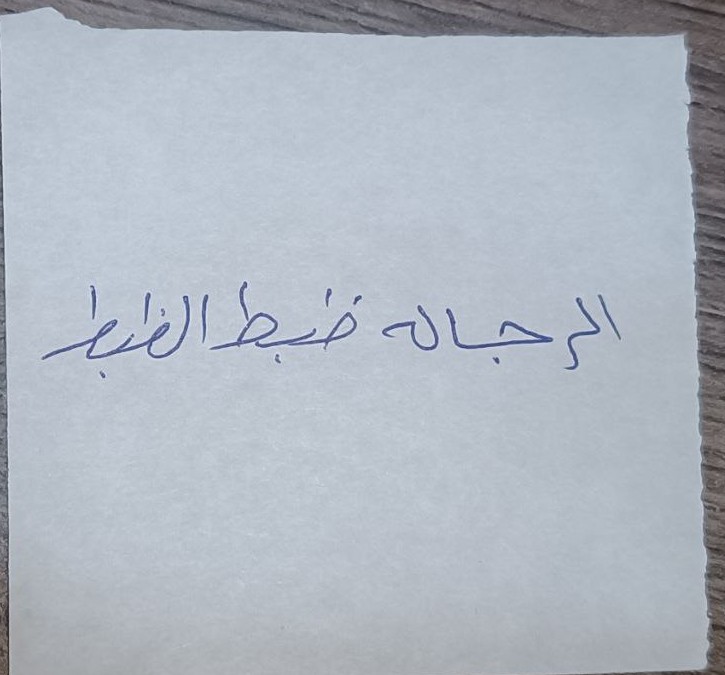 الرجاله ظبط الظبط